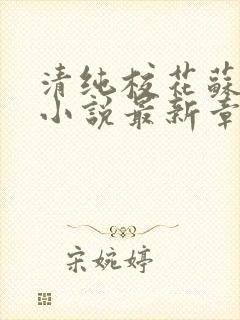 清纯校花蘇
小説最新章
宋婉婷